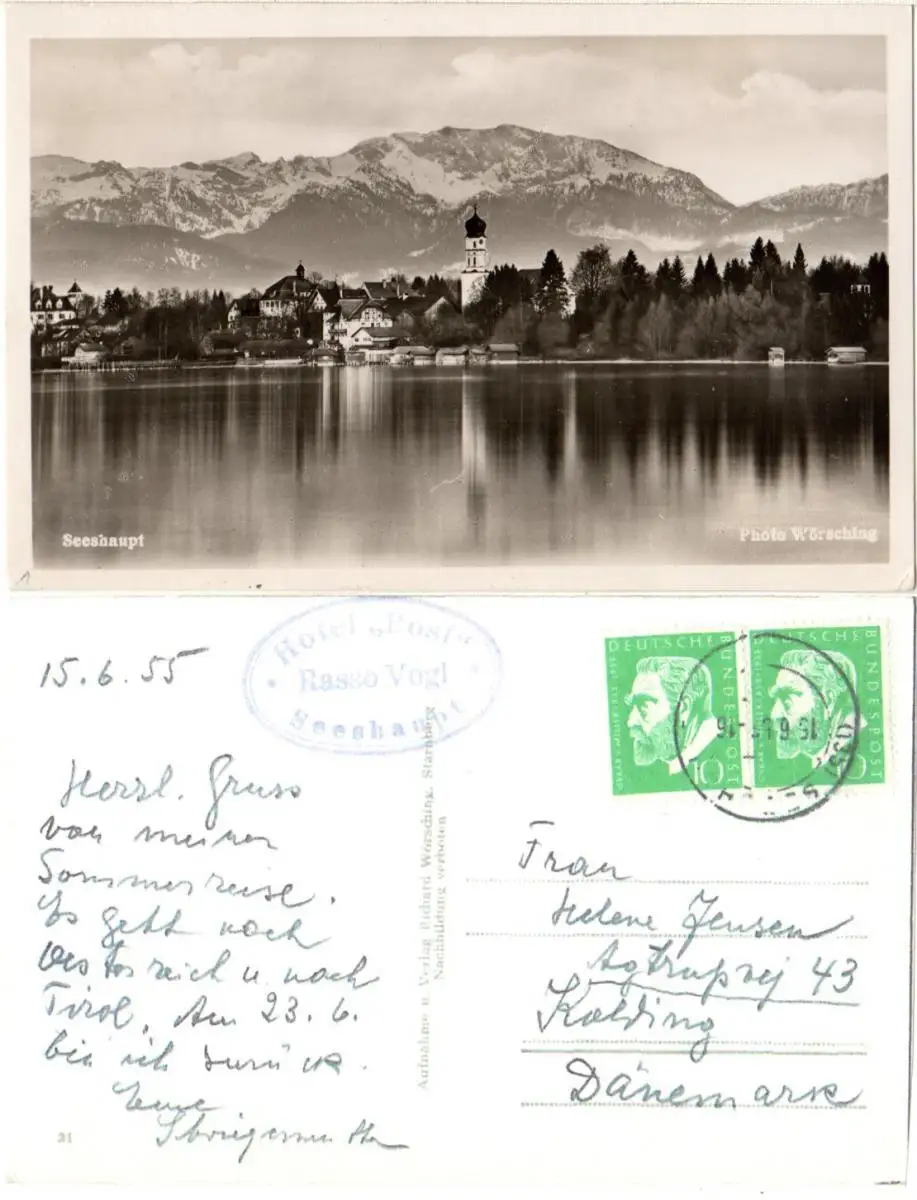 Seeshaupt
Photo Wörsching
15.6.55
Hotel „Post“
Rasso Vogl
Seeshaupt
DEUTSCHE BUNDESPOST
OSKAR V. MILLER 1855-1955
10
DEUTSCHE BUNDESPOST
OSKAR V. MILLER 1855-1955
Herzl. Gruss
von meiner
Sommerreise.
Es geht nach
Oesterreich u. nach
Tirol. Am 23.6.
bin ich zurück.
Aufnahme u. Verlag Richard Wörsching, Starnberg
Nachbildung verboten
Frau
Helene Jensen
Agtrupvej 43
Kolding
Dänemark
21